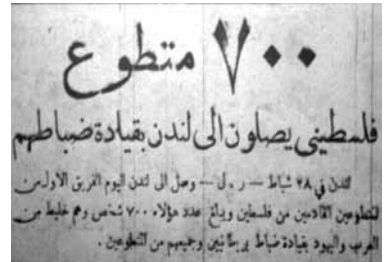 ٧٠٠ متطوع
فلسطيني يصلون الى لندن بقيادة ضباطهم
لندن في ٢٨ شباط — ر . ل — وصل الى لندن اليوم الفريق الاول من
المتطوعين القادمين من فلسطين ويبلغ عدد هؤلاء ٧٠٠ شخص وهم خليط من
العرب واليهود بقيادة ضباط بريطانيين وجميعهم من المتطوعين .